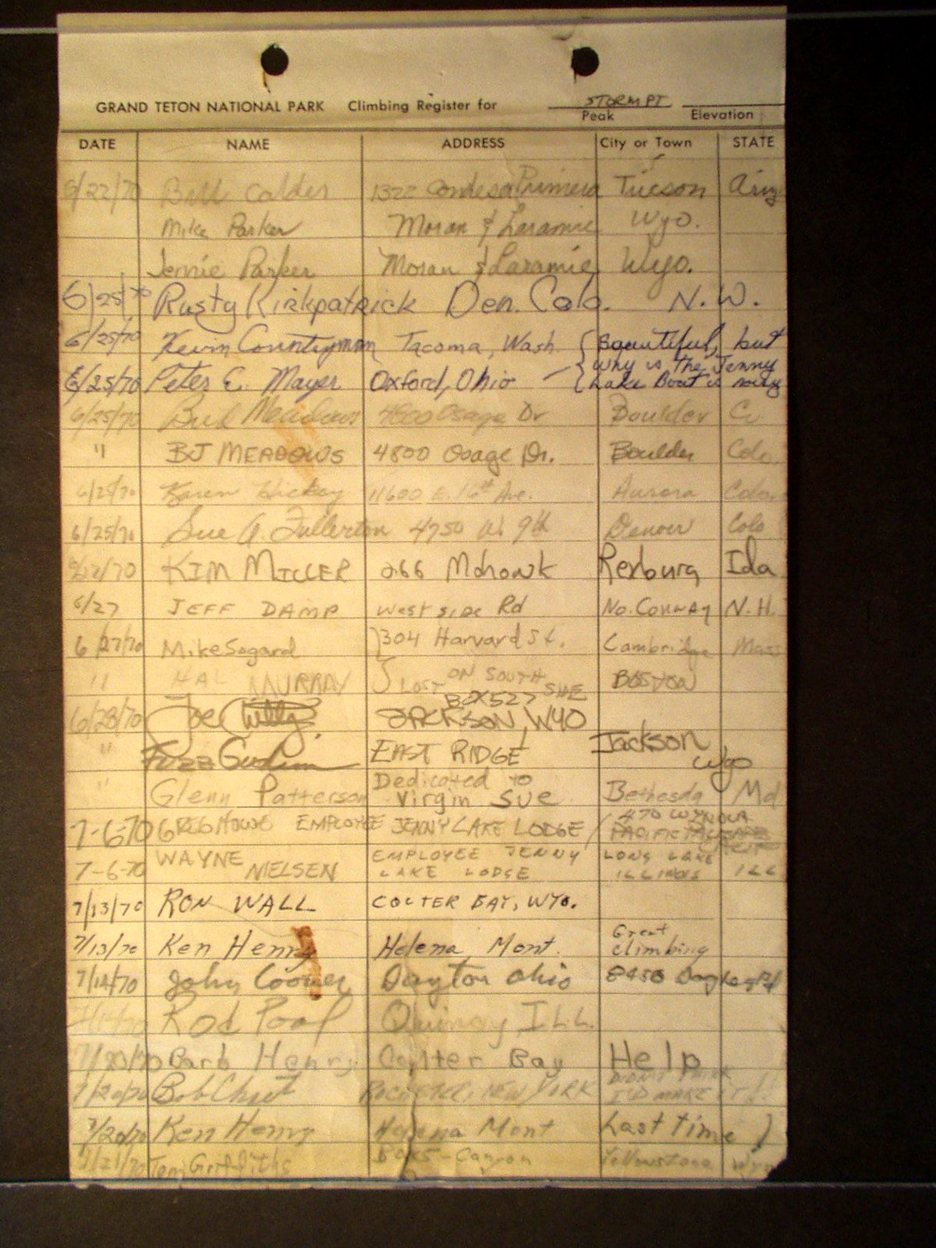 STORM PT
GRAND TETON NATIONAL PARK Climbing Register for
Peak Elevation
DATE NAME ADDRESS City or Town STATE
6/22/70 Bill Calder 1322 Condesa Primera Tucson Ariz
Mike Parker Moran & Laramie Wyo.
Jennie Parker Moran & Laramie Wyo.
6/25/70 Rusty Kirkpatrick Den. Colo. N.W.
6/25/70 Kevin Countryman Tacoma, Wash. { Beautiful, but
why is the Jenny
6/25/70 Peter E. Mayer Oxford, Ohio — { Lake Boat so noisy
6/25/70 Bud Meadows 4800 Osage Dr Boulder C
" BJ MEADOWS 4800 Osage Dr. Boulder Colo.
6/25/70 Karen Hickey 11600 E. 16th Ave. Aurora Colo.
6/25/70 Sue A. Fullerton 4750 W. 9th Denver Colo
/70 KIM MILLER 266 Mohowk Rexburg Ida
6/27 JEFF DAMP West side Rd No. Conway N.H.
6/27/70 Mike Sogard } 304 Harvard St. Cambridge Mass
" HAL MURRAY LOST ON SOUTH SIDE BOSTON
BOX 527
6/28/70 Joe JACKSON, WYO
" Fuzz EAST RIDGE Jackson
Wyo
" Glenn Patterson Dedicated to
Virgin Sue Bethesda Md
7-6-70 EMPLOYEE JENNY LAKE LODGE / 470
PACIFIC
7-6-70 WAYNE NIELSEN EMPLOYEE JENNY
LAKE LODGE LONG LAKE
ILLINOIS ILL
7/13/70 RON WALL COLTER BAY, WYO.
7/13/70 Ken Henry Helena Mont. Great
Climbing
7/14/70 John Coover Dayton Ohio 8450
Rod Pool Quincy ILL.
7/20/70 Barb Henry Colter Bay Help
7/20/70 Bob ROCHESTER, NEW YORK DIDN'T THINK
I'D MAKE IT!!
7/20/70 Ken Henry Helena Mont Last time !
7/21/70 Tom Griffiths Box 5 - Canyon Yellowstone Wyo